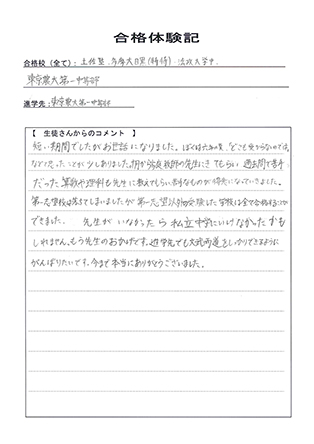 合格体験記
合格校(全て): 土佐塾 目黒(特待) 法政大学中
東京農大第一中等部
進学先: 東京農大第一中等部
【 生徒さんからのコメント 】
短い期間でしたがお世話になりました。ぼくは六年の夏、どこも受からないのでは
ないかと思ったことが少しありました。家庭教師の先生にきてもらい過去問で苦手
だった算数や理科も先生に教えてもらい苦手なものが得意になっていきました。
第一志望校は落ちてしまいましたが第一志望以外の受験した学校は全て合格することが
できました. 先生がいなかったら私立中学にいけなかったかも
しれません。もう先生のおかげです。進学先でも文武両道をしっかりできるように
がんばりたいです。今まで本当にありがとうございました。